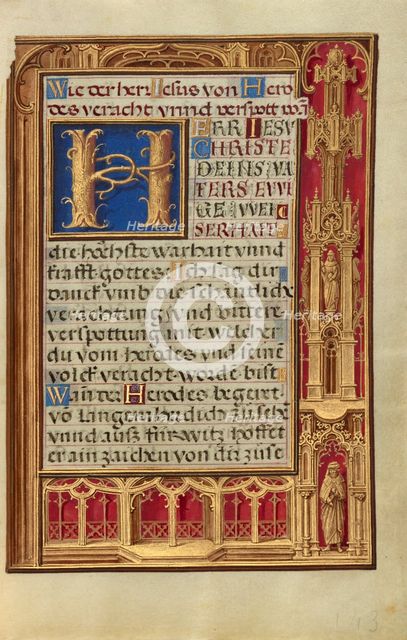 Wie der herr Jesus von Hero
des veracht vnnd verspott wa͂
HERR IESV
CHRISTE
DEINS VA
TERS EWI
GE WEIS
SERHAFT
die höchste warhait vnnd
krafft gottes: Ich sag dir
danck vmb die schentlich
verachtung vnd bittere
verspottung mit welcher
du vom herodes vnd seine
volck veracht worde͂ bist
Wan͂ der Herodes begeret
vo͂ langem her dich zusehe͂
vnnd ausz fürwitz hoffet
er ain zaichen von dir zuse
143